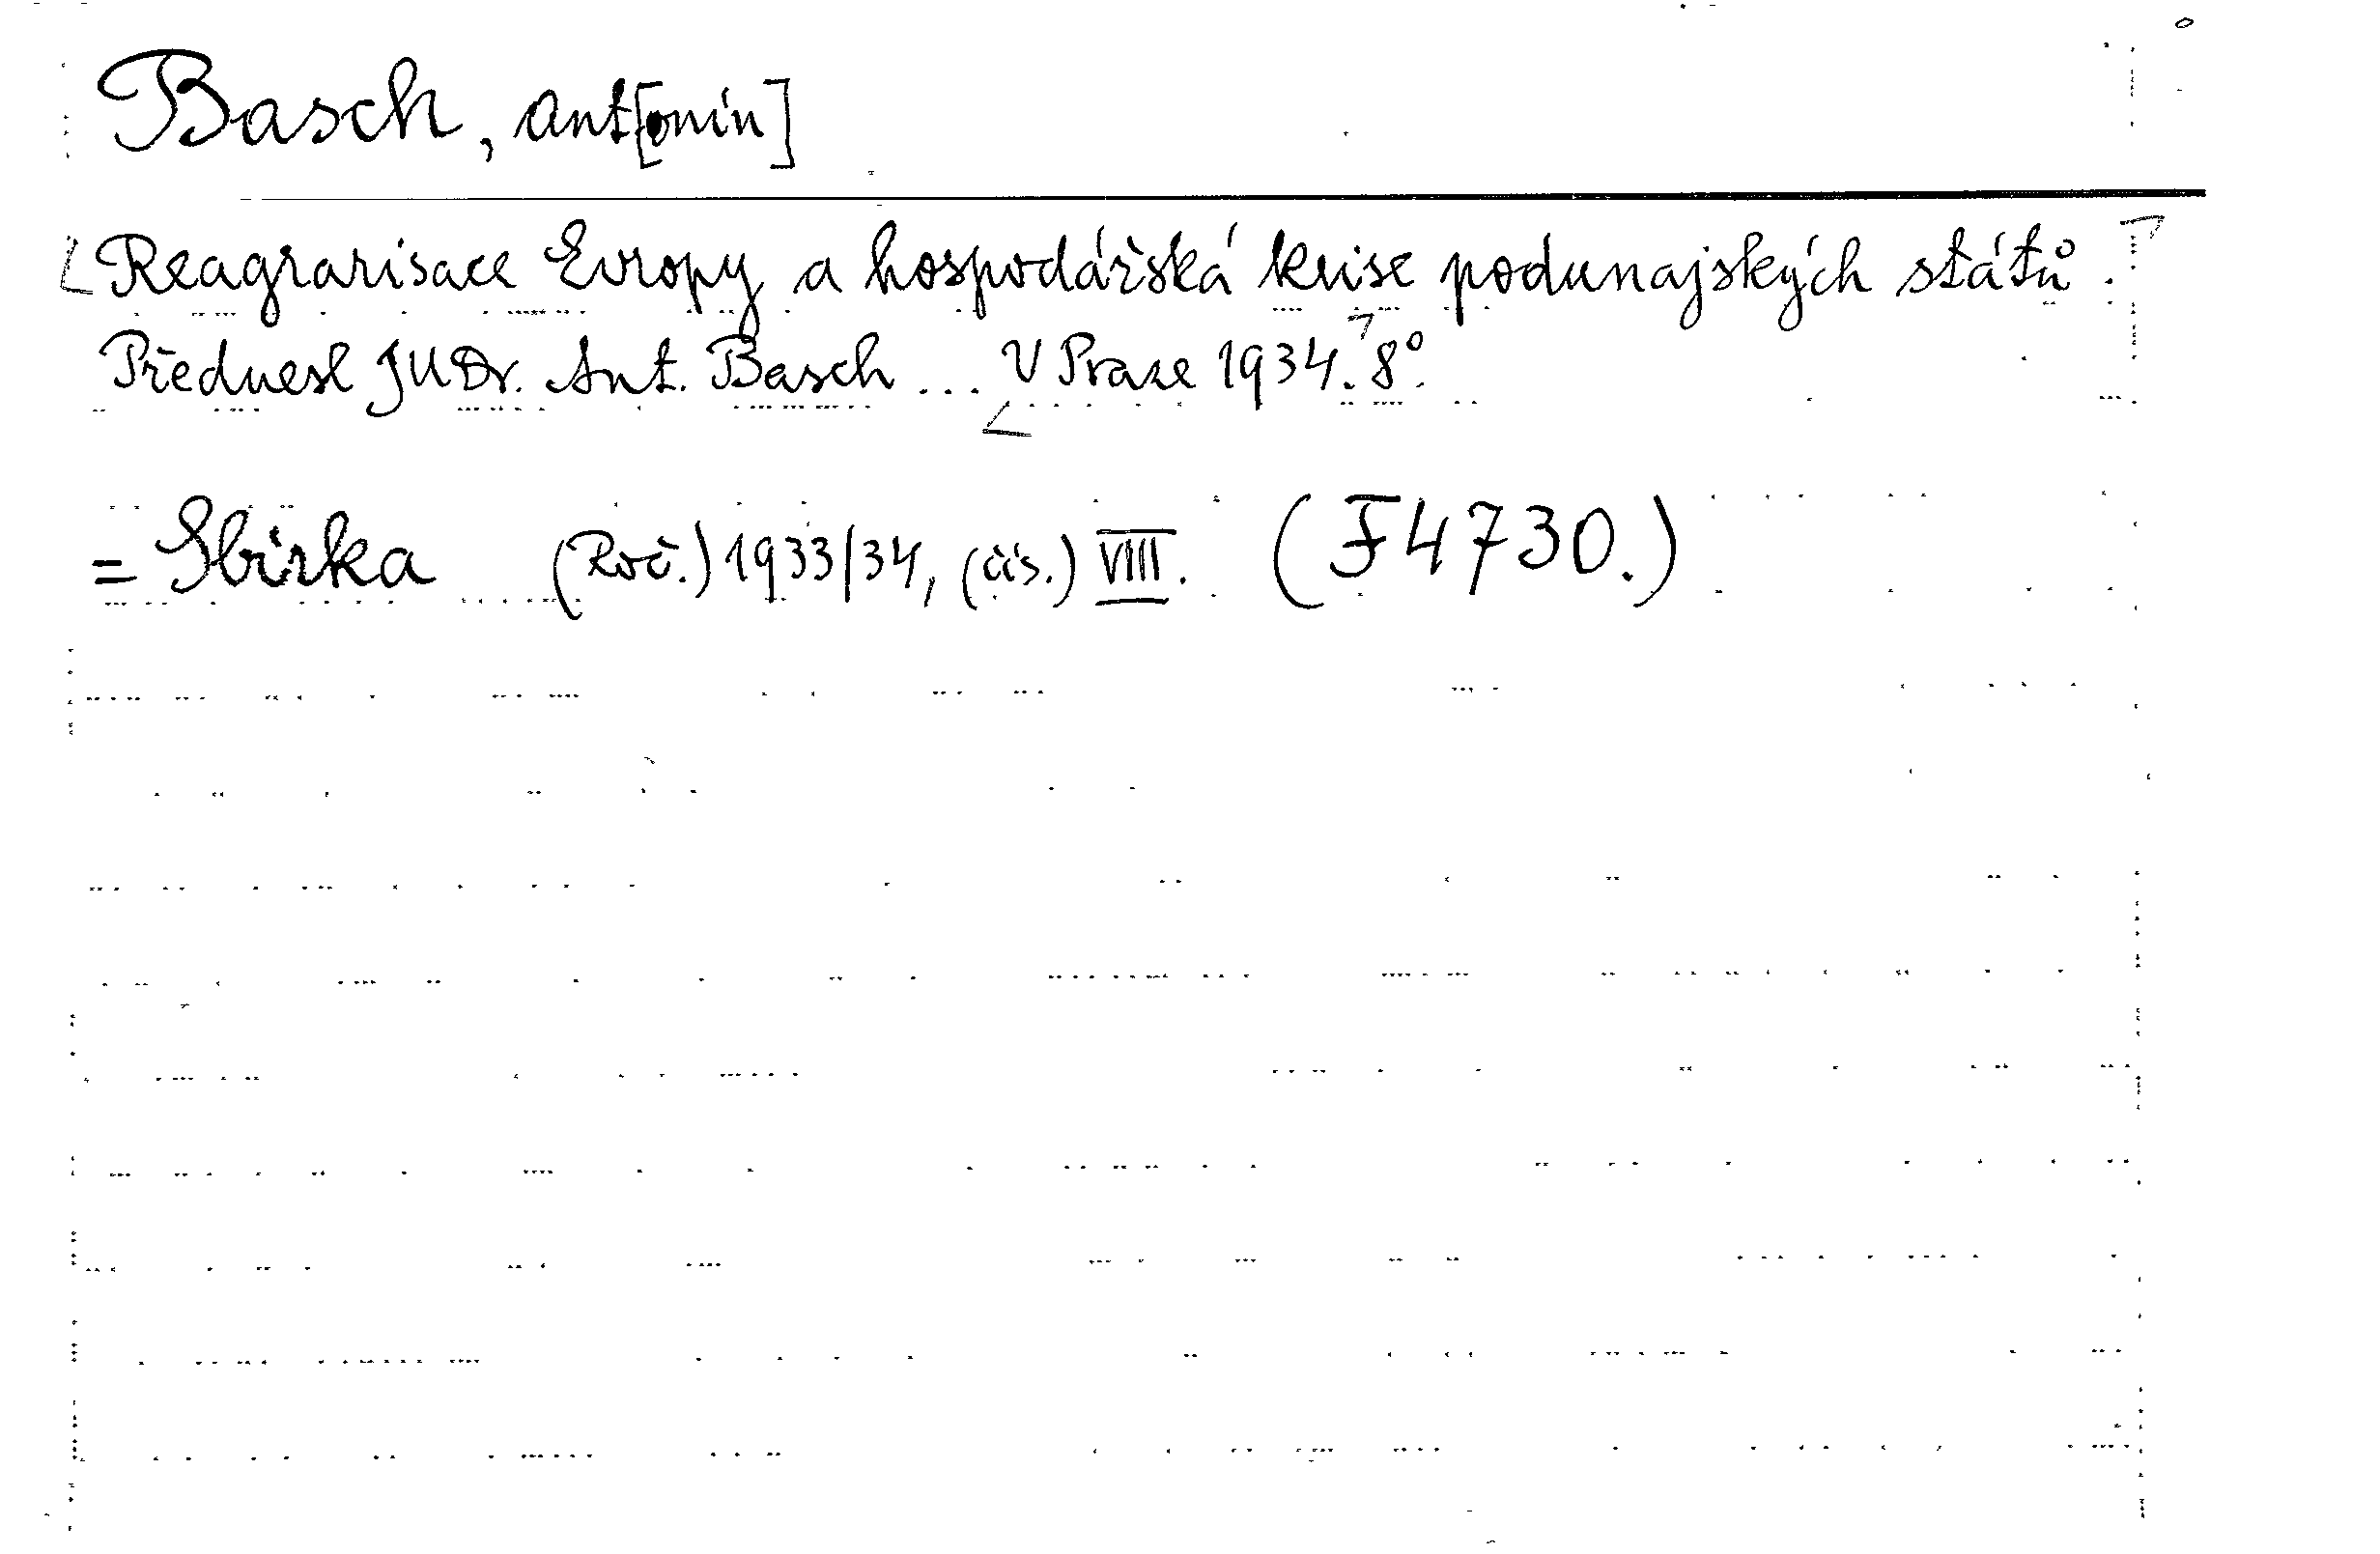 Basch, Ant[onín]
Reagrarisace Evropy a hospodářská krise podunajských států.
Přednesl JUDr. Ant. Basch ... V Praze 1934. 8°.
= Sbírka (Roč.) 1933/34, (čís.) VIII. (F 4730.)